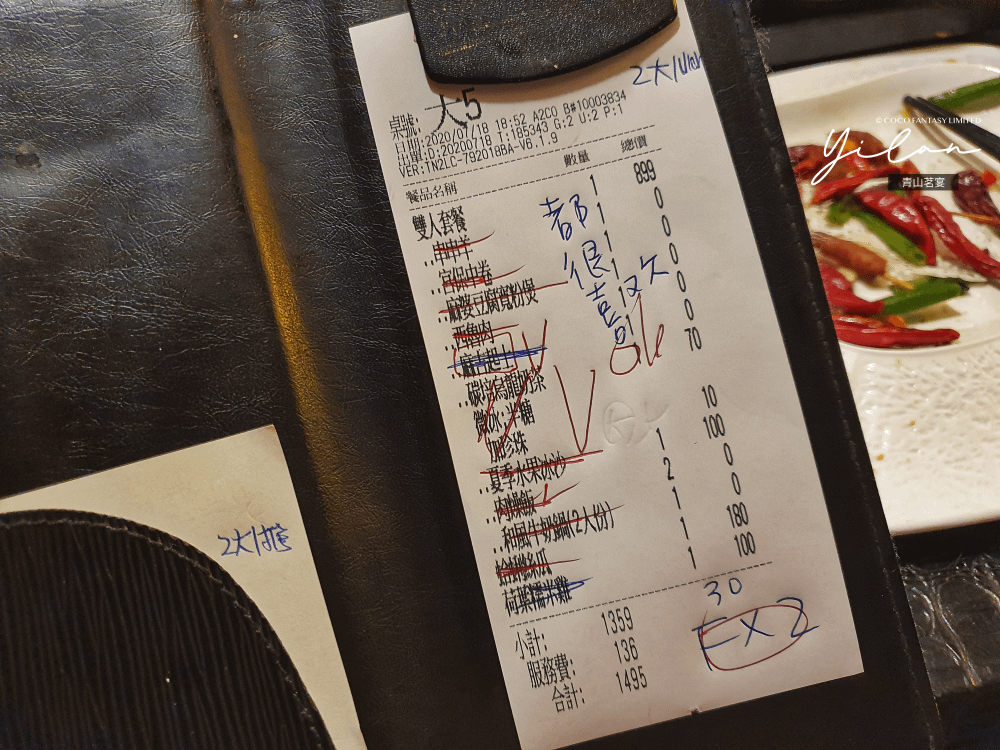 2大1
桌號: 大5
日期:2020/07/18 18:52 A2C0 B#10003834
出單:D:20200718 T:185343 G:2 U:2 P:1
VER:TN2LC-792018BA-V6.1.9
餐品名稱 數量 總價
雙人套餐 1 899
..串串羊 1 0
..宮保中卷 1 0
..麻婆豆腐寬粉煲 1 0
..西魯肉 1 0
..麻吉起士 1 0
..碳培烏龍奶茶 70
微冰;半糖
加珍珠 10
..夏季水果冰沙 1 100
..肉燥飯 2 0
..和風牛奶鍋(2人份) 1 0
蛤蜊絲瓜 1 180
荷葉糯米雞 1 100
小計: 1359
服務費: 136
合計: 1495
都
很
喜又欠
ok
30
EX2
2大1
© COCO FANTASY LIMITED
Yilan
青山茗宴